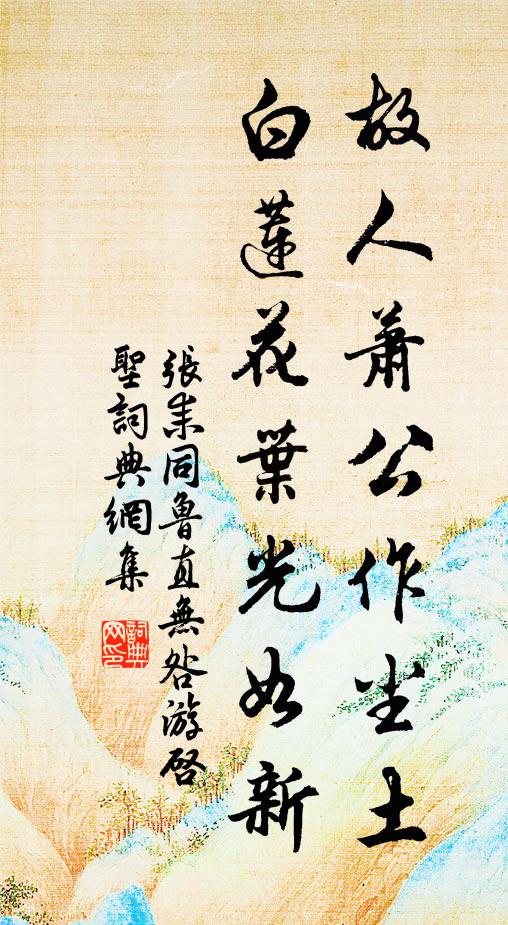 故人蕭公作尘土
白蓮花葉光如新
張耒同魯直無咎游啓
聖詞典網集
詞典网印